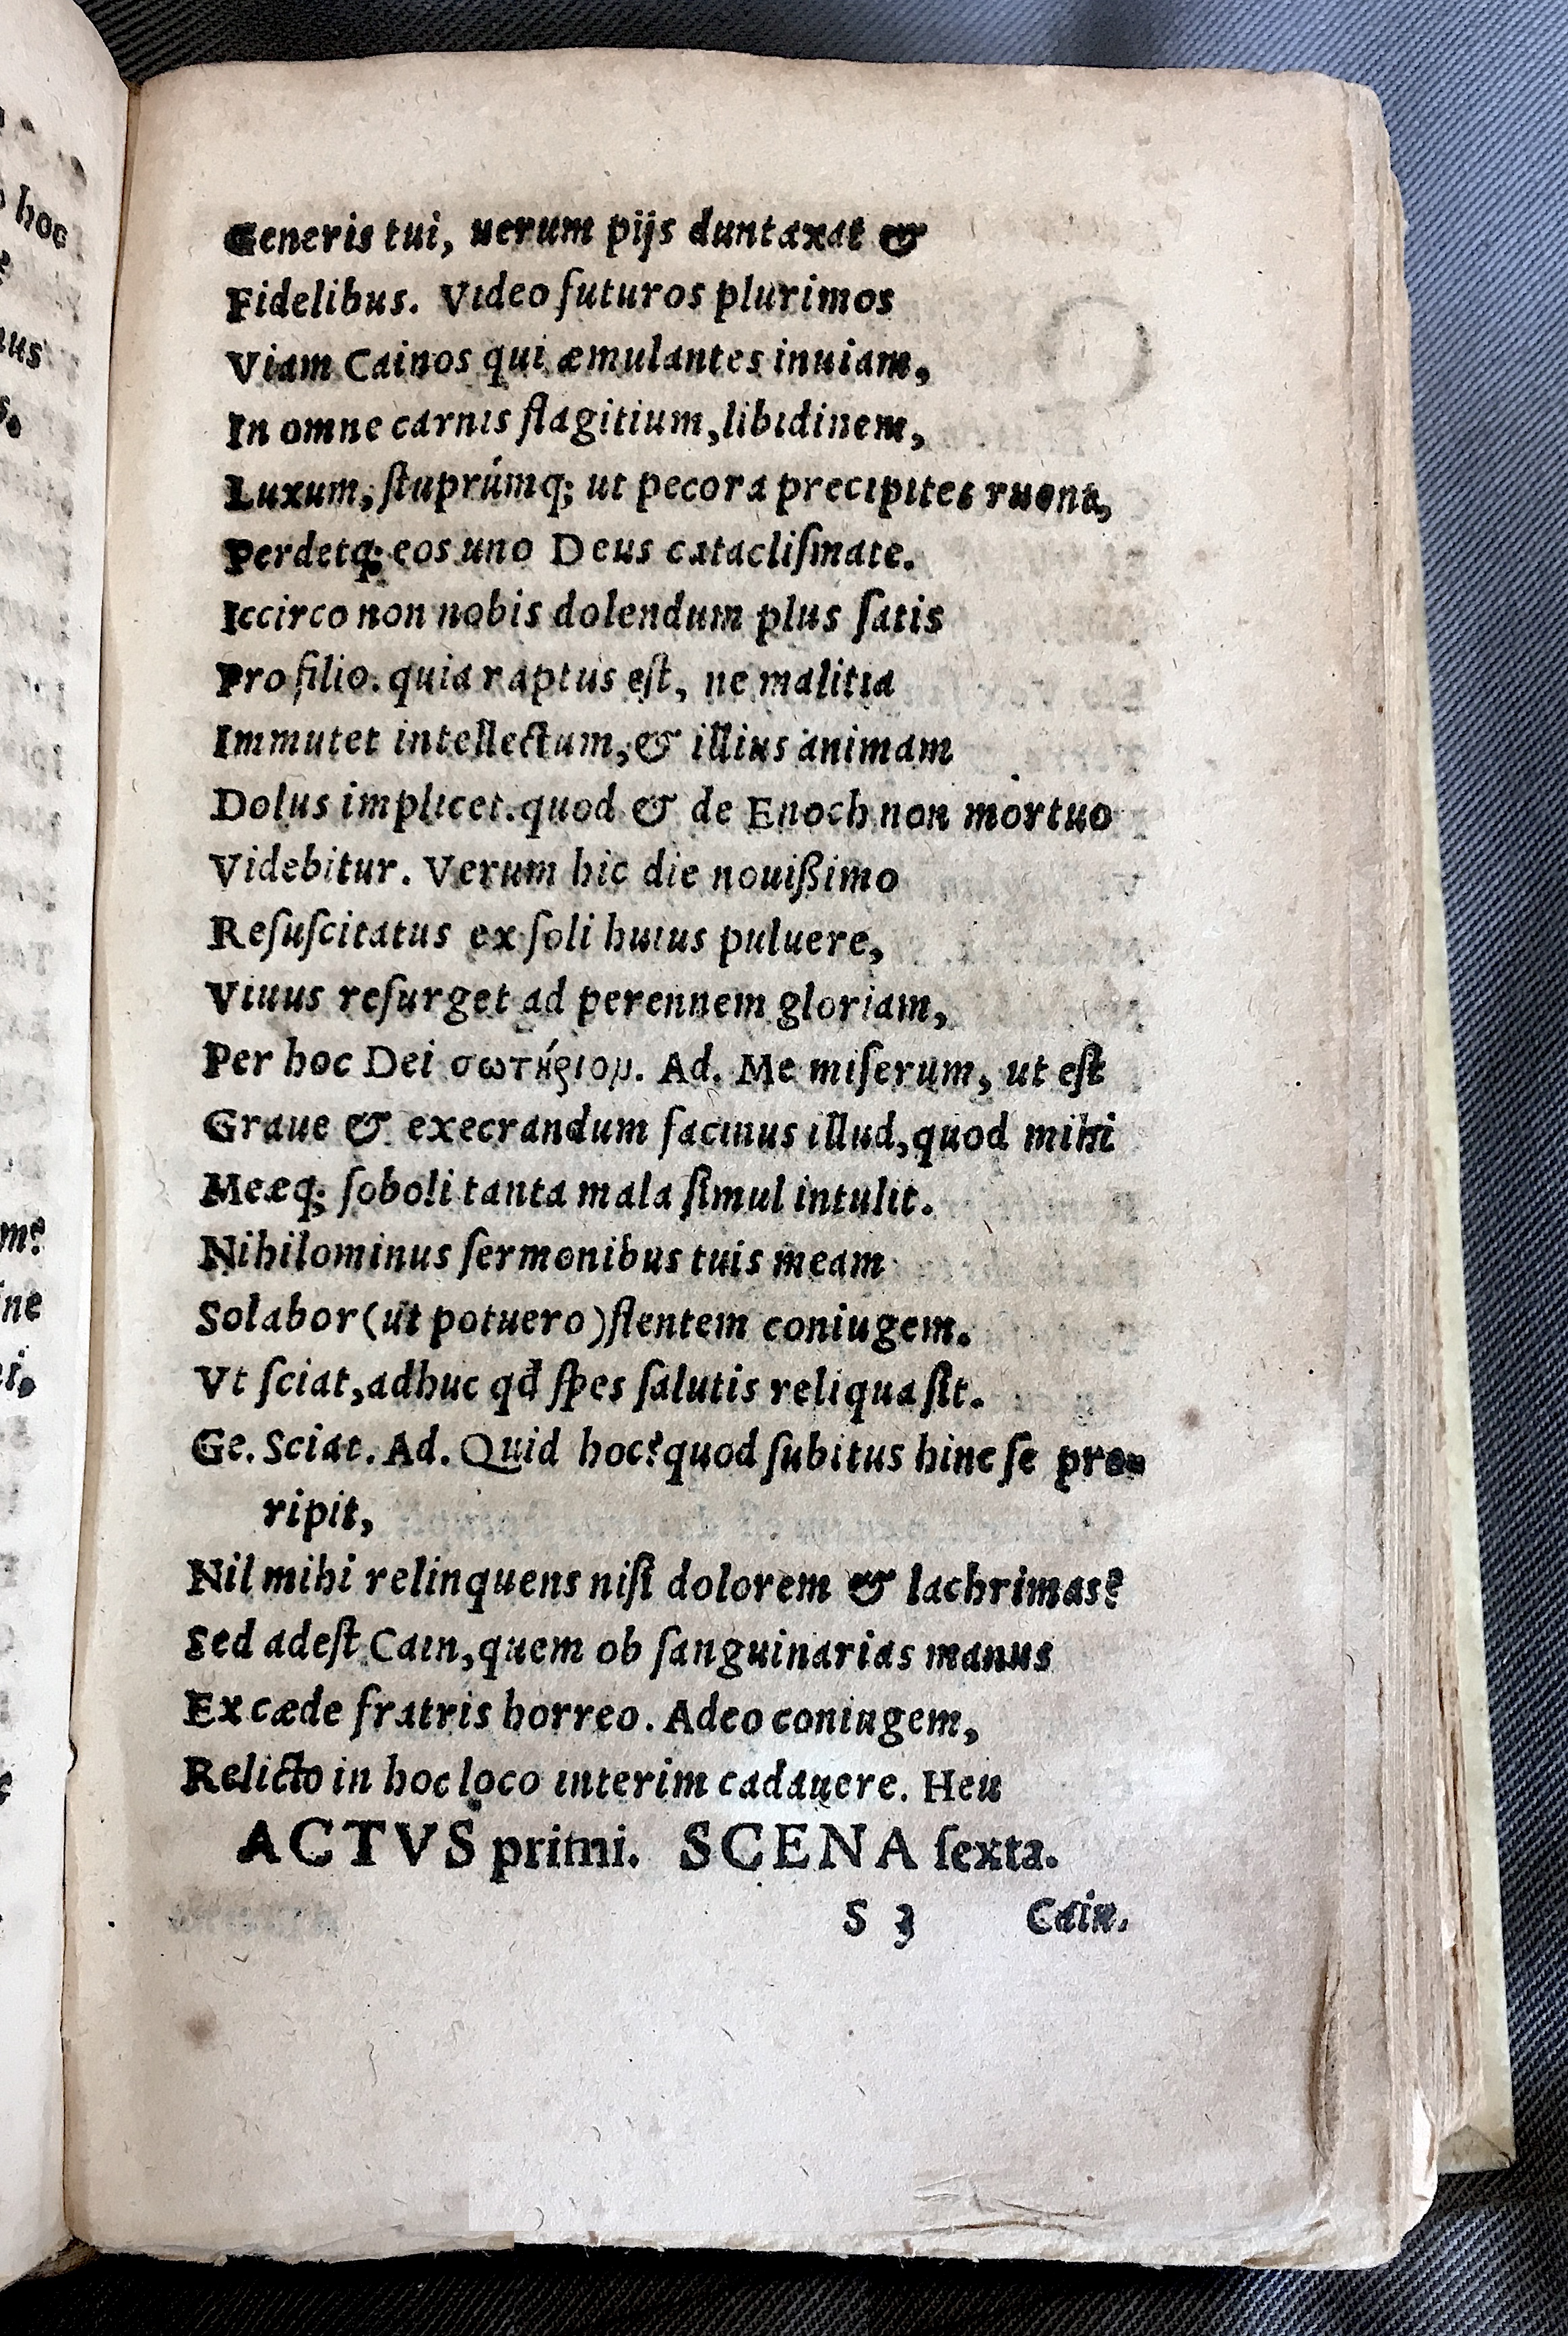 Generis tui, uerum pijs duntaxat &
Fidelibus. Video futuros plurimos
Viam Cainos qui æmulantes inuiam,
In omne carnis flagitium, libidinem,
Luxum, ſtuprúmq; ut pecora precipites ruent,
Perdetq; eos uno Deus catacliſmate.
Iccirco non nobis dolendum plus ſatis
Pro filio. quia raptus eſt, ne malitia
Immutet intellectum, & illius animam
Dolus implicet. quod & de Enoch non mortuo
Videbitur. Verum hic die nouißimo
Reſuſcitatus ex ſoli huius puluere,
Viuus reſurget ad perennem gloriam,
Per hoc Dei σωτήριον. Ad. Me miſerum, ut eſt
Graue & execrandum facinus illud, quod mihi
Meæq; ſoboli tanta mala ſimul intulit.
Nihilominus ſermonibus tuis meam
Solabor (ut potuero) flentem coniugem.
Vt ſciat, adhuc qd̃ ſpes ſalutis reliqua ſit.
Ge. Sciat. Ad. Quid hoc? quod ſubitus hinc ſe pro-
ripit,
Nil mihi relinquens niſi dolorem & lachrimas?
Sed adeſt Cain, quem ob ſanguinarias manus
Ex cæde fratris horreo. Adeo coniugem,
Relicto in hoc loco interim cadauere. Heu
ACTVS primi. SCENA ſexta.
S 3 Cain.